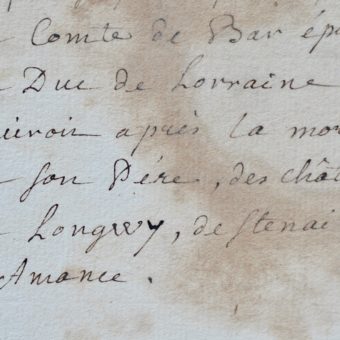 Comte de Bar épo
Duc de Lorraine
uivoir après la mor
son Pére, des chât
Longwy, de Stenai
Amance.